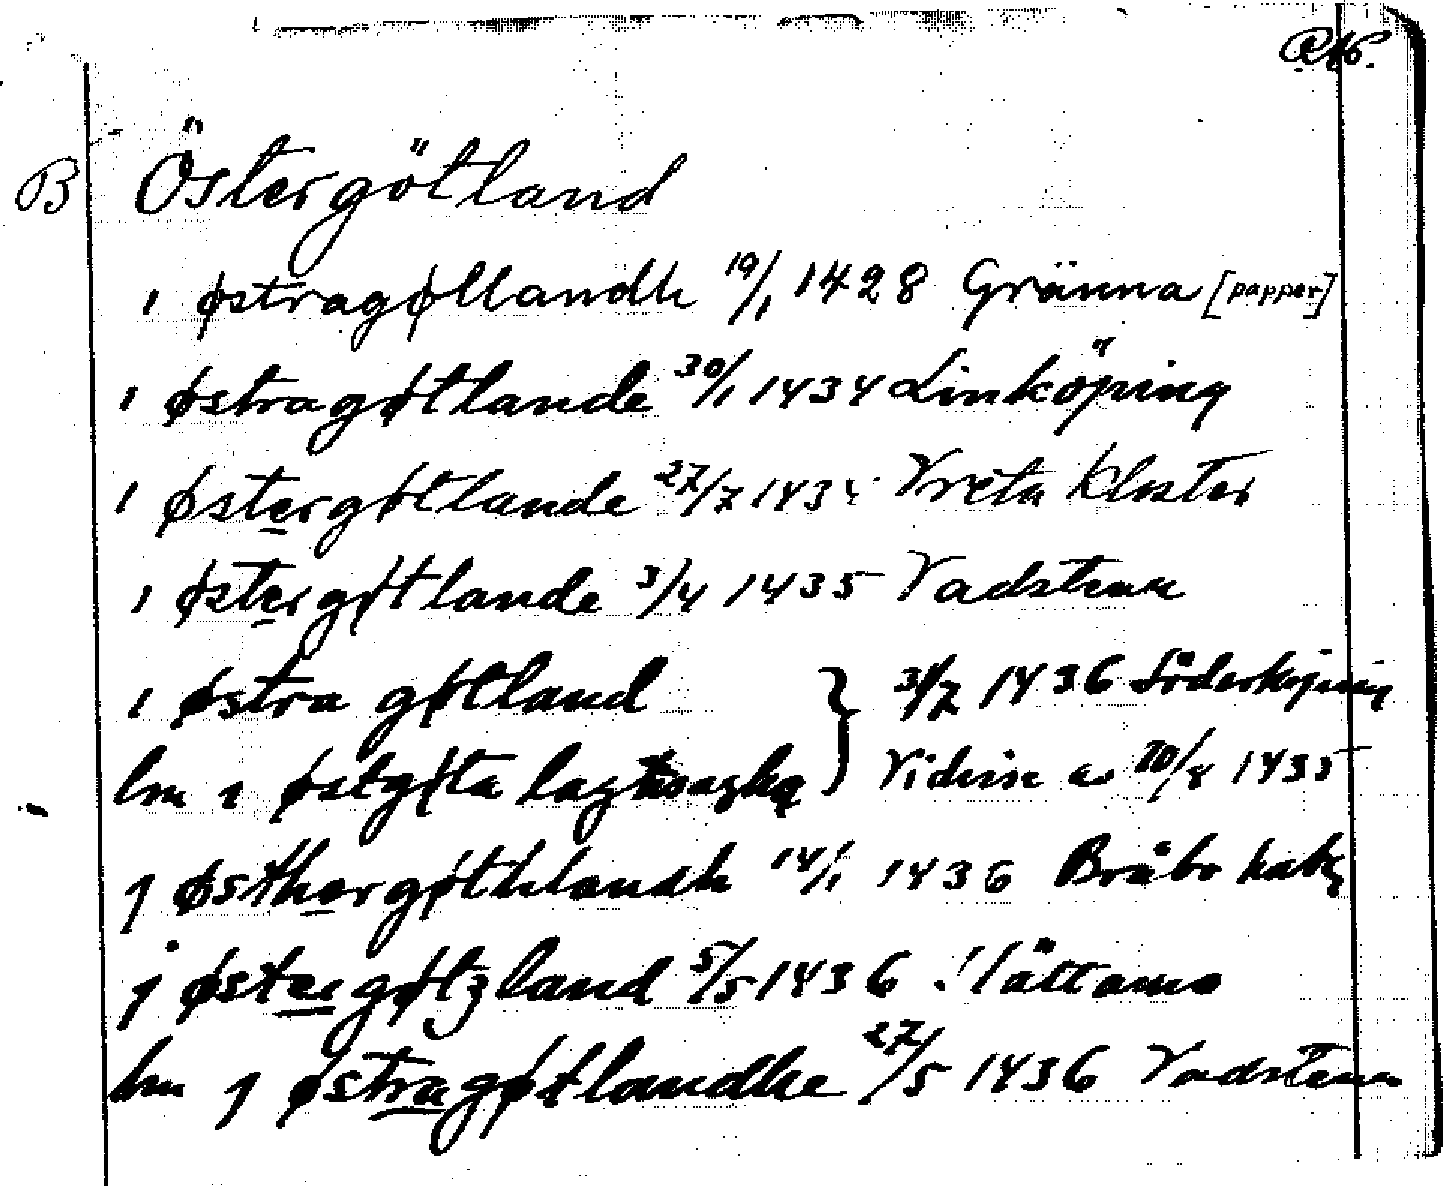 RAP.
B Östergötland
ı østragøllandh 19/1 1428 Gränna [papper]
ı østragøtlande 30/1 1434 Linköping
ı østergøtlande 27/7 143 Vreta Kloster
ı østergøtlande 3/4 1435 Vadstena
ı østra gøtland } 31/7 1436 Söderköping
ı østgøta } Vidim a 20/8 1435
ȷ østhergøthlandh 14/1 1436 Bråbo
j østergøtzland 5/5 1436 Slättamo
ȷ østragøtlandhe 27/5 1436 Vadstena